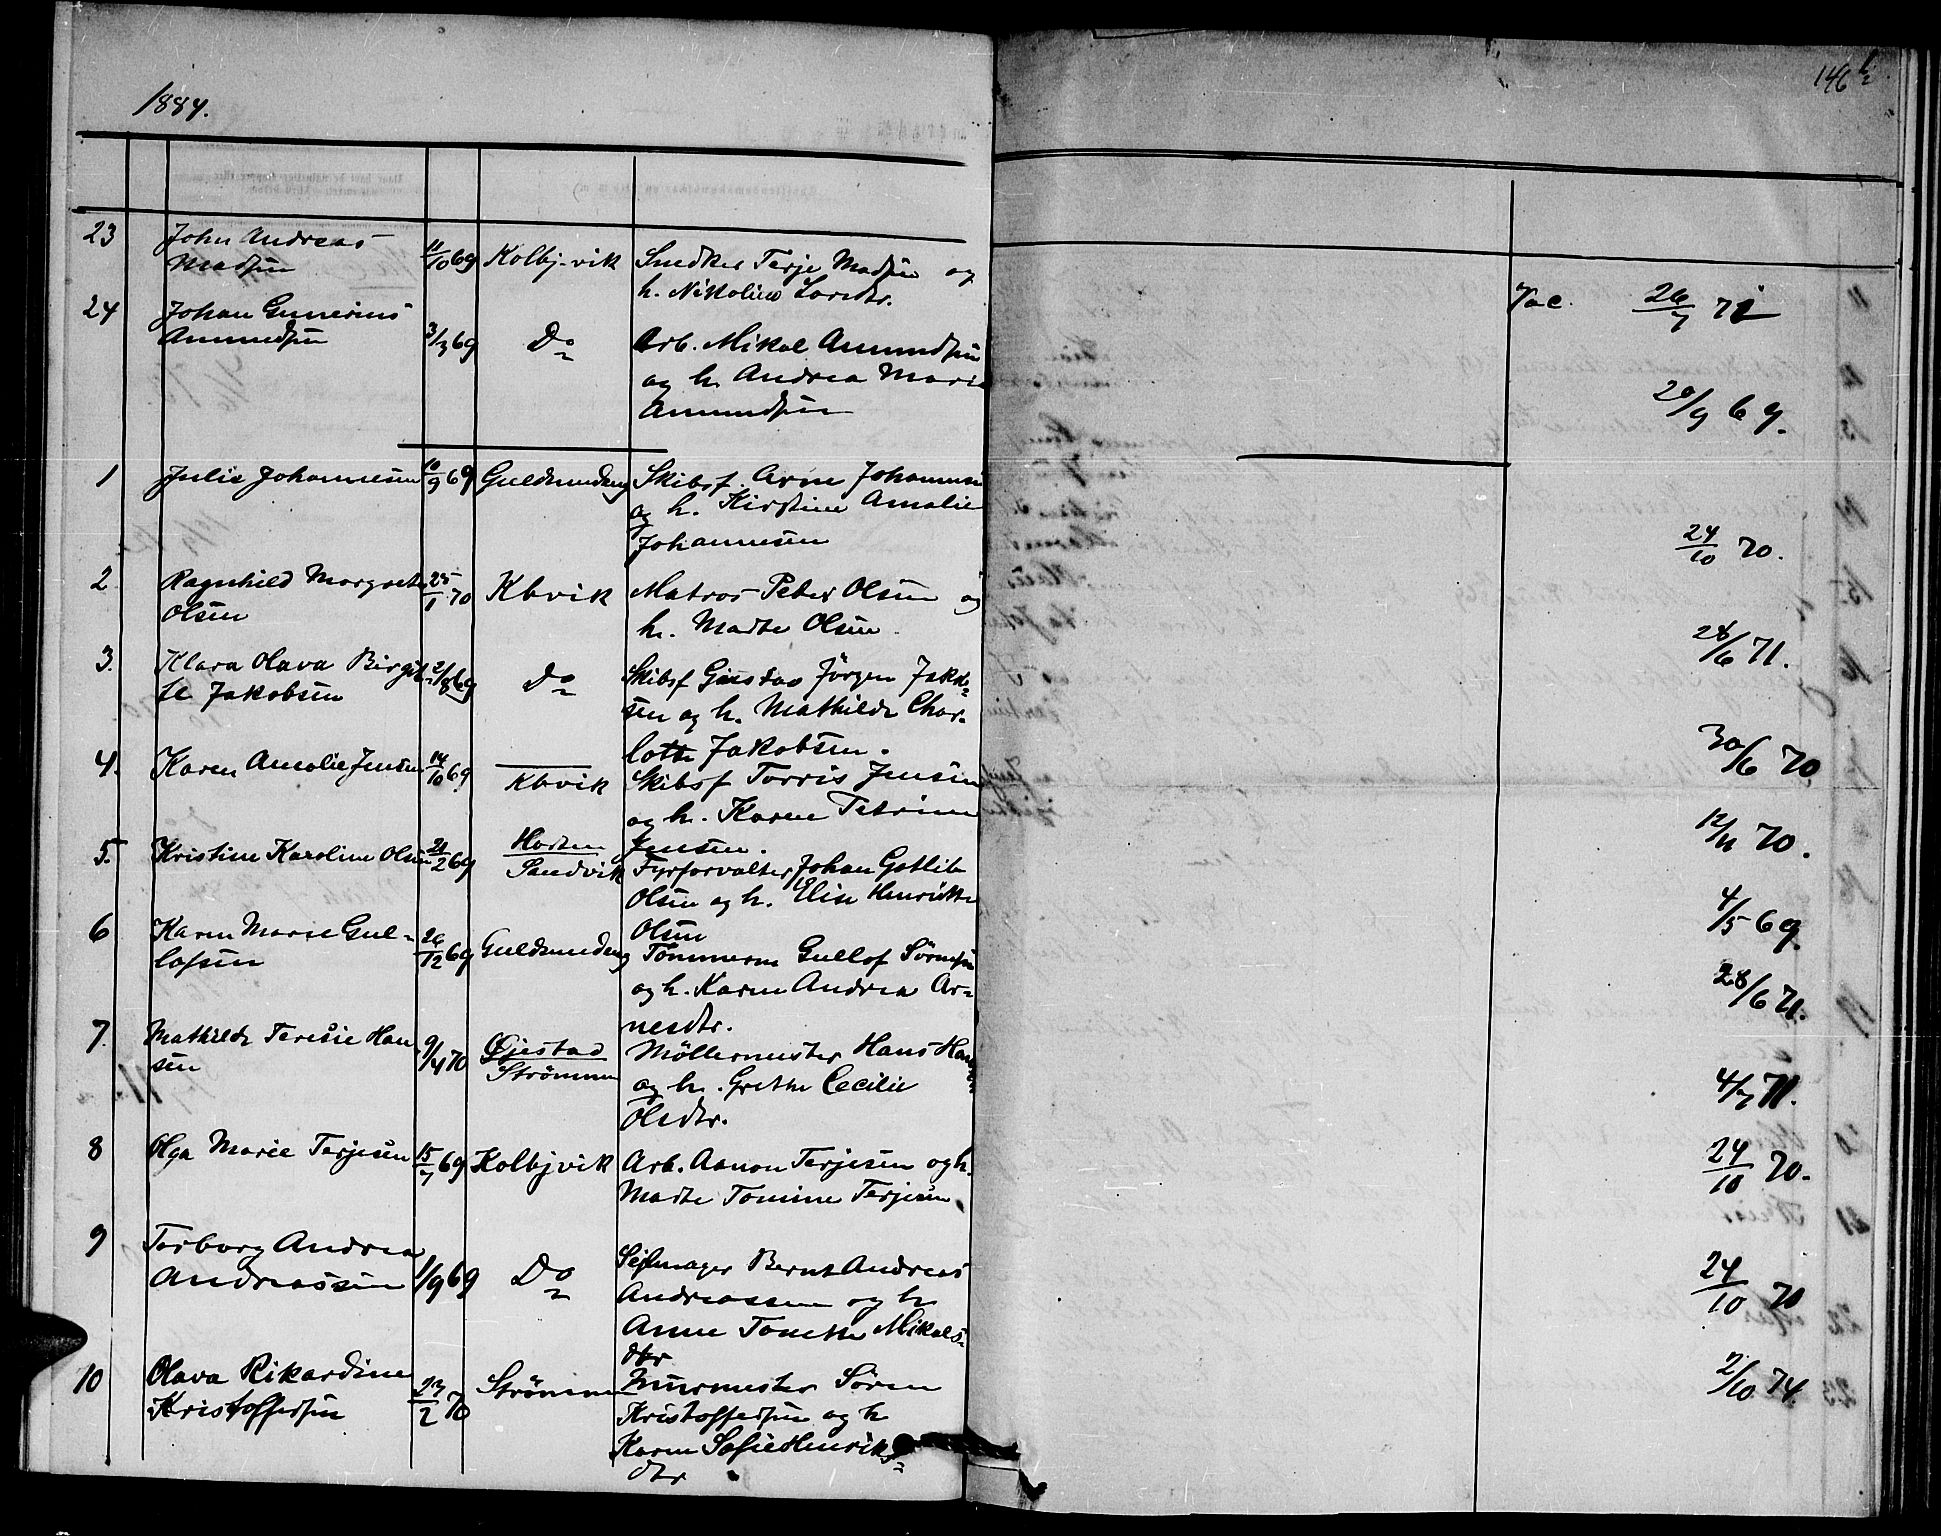 1884.
146 b
23 John Andreas
Madsen
11/10 69 Kolbj.vik Snedker Terje Madsen og
h. Nikoline Larsdtr.
Vac. 26/7 71
24 Johan Gunerius
Amundsen
3/3 69 Do Arb. Mikal Amundsen
og h. Andrea Marie
Amundsen
29/9 69.
1 Julie Johannesen 10/9 69 Guldsmedeng Skibsf. Arne Johannesen
og h. Kirstine Amalie
Johannesen
24/10 70.
2 Ragnhild Margrete
Olsen
25/1 70 Kbvik Matros Peder Olsen og
h. Marte Olsen.
28/6 71.
3. Klara Olava Birgit-
te Jakobsen
21/8 69 Do Skibsf Gustav Jörgen Jakob-
sen og h. Mathilde Char-
lotte Jakobsen.
30/6 70
4. Karen Amalie Jensen 14/10 69 Kbvik Skibsf Torris Jensen
og h. Karen Petrine
Jensen.
12/11 70.
5. Kristine Karoline Olsen 28/2 69 Horten
Sandvik
Fyrforvalter Johan Gotlib
Olsen og h. Elise Henriette
Olsen
4/5 69.
6 Karen Marie Gul-
lofsen
26/12 69 Guldsmedeng Tömmerm Gullof Sörensen
og h. Karen Andrea Ar-
nesdtr.
28/6 71.
7. Mathilde Teresie Han
sen
9/4 70 Öjestad
Strömmen
Möllermester Hans Hansen
og h. Grethe Cecilie
Olsdtr.
4/7 71.
8 Olga Marie Terjesen 15/7 69 Kolbjvik Arb. Aanon Terjesen og h.
Marte Tomine Terjesen
24/10 70.
9 Torborg Andrea
Andreassen
1/9 69 Do Sejlmager Bernt Andreas
Andreassen og h
Anne Tonette Mikals-
dtr
24/10 70
10 Olava Rikardine
Kristoffersen
23/2 70 Strömmen Murmester Sören
Kristoffersen og h
Karen Sofie Henriks-
dtr
2/10 74.